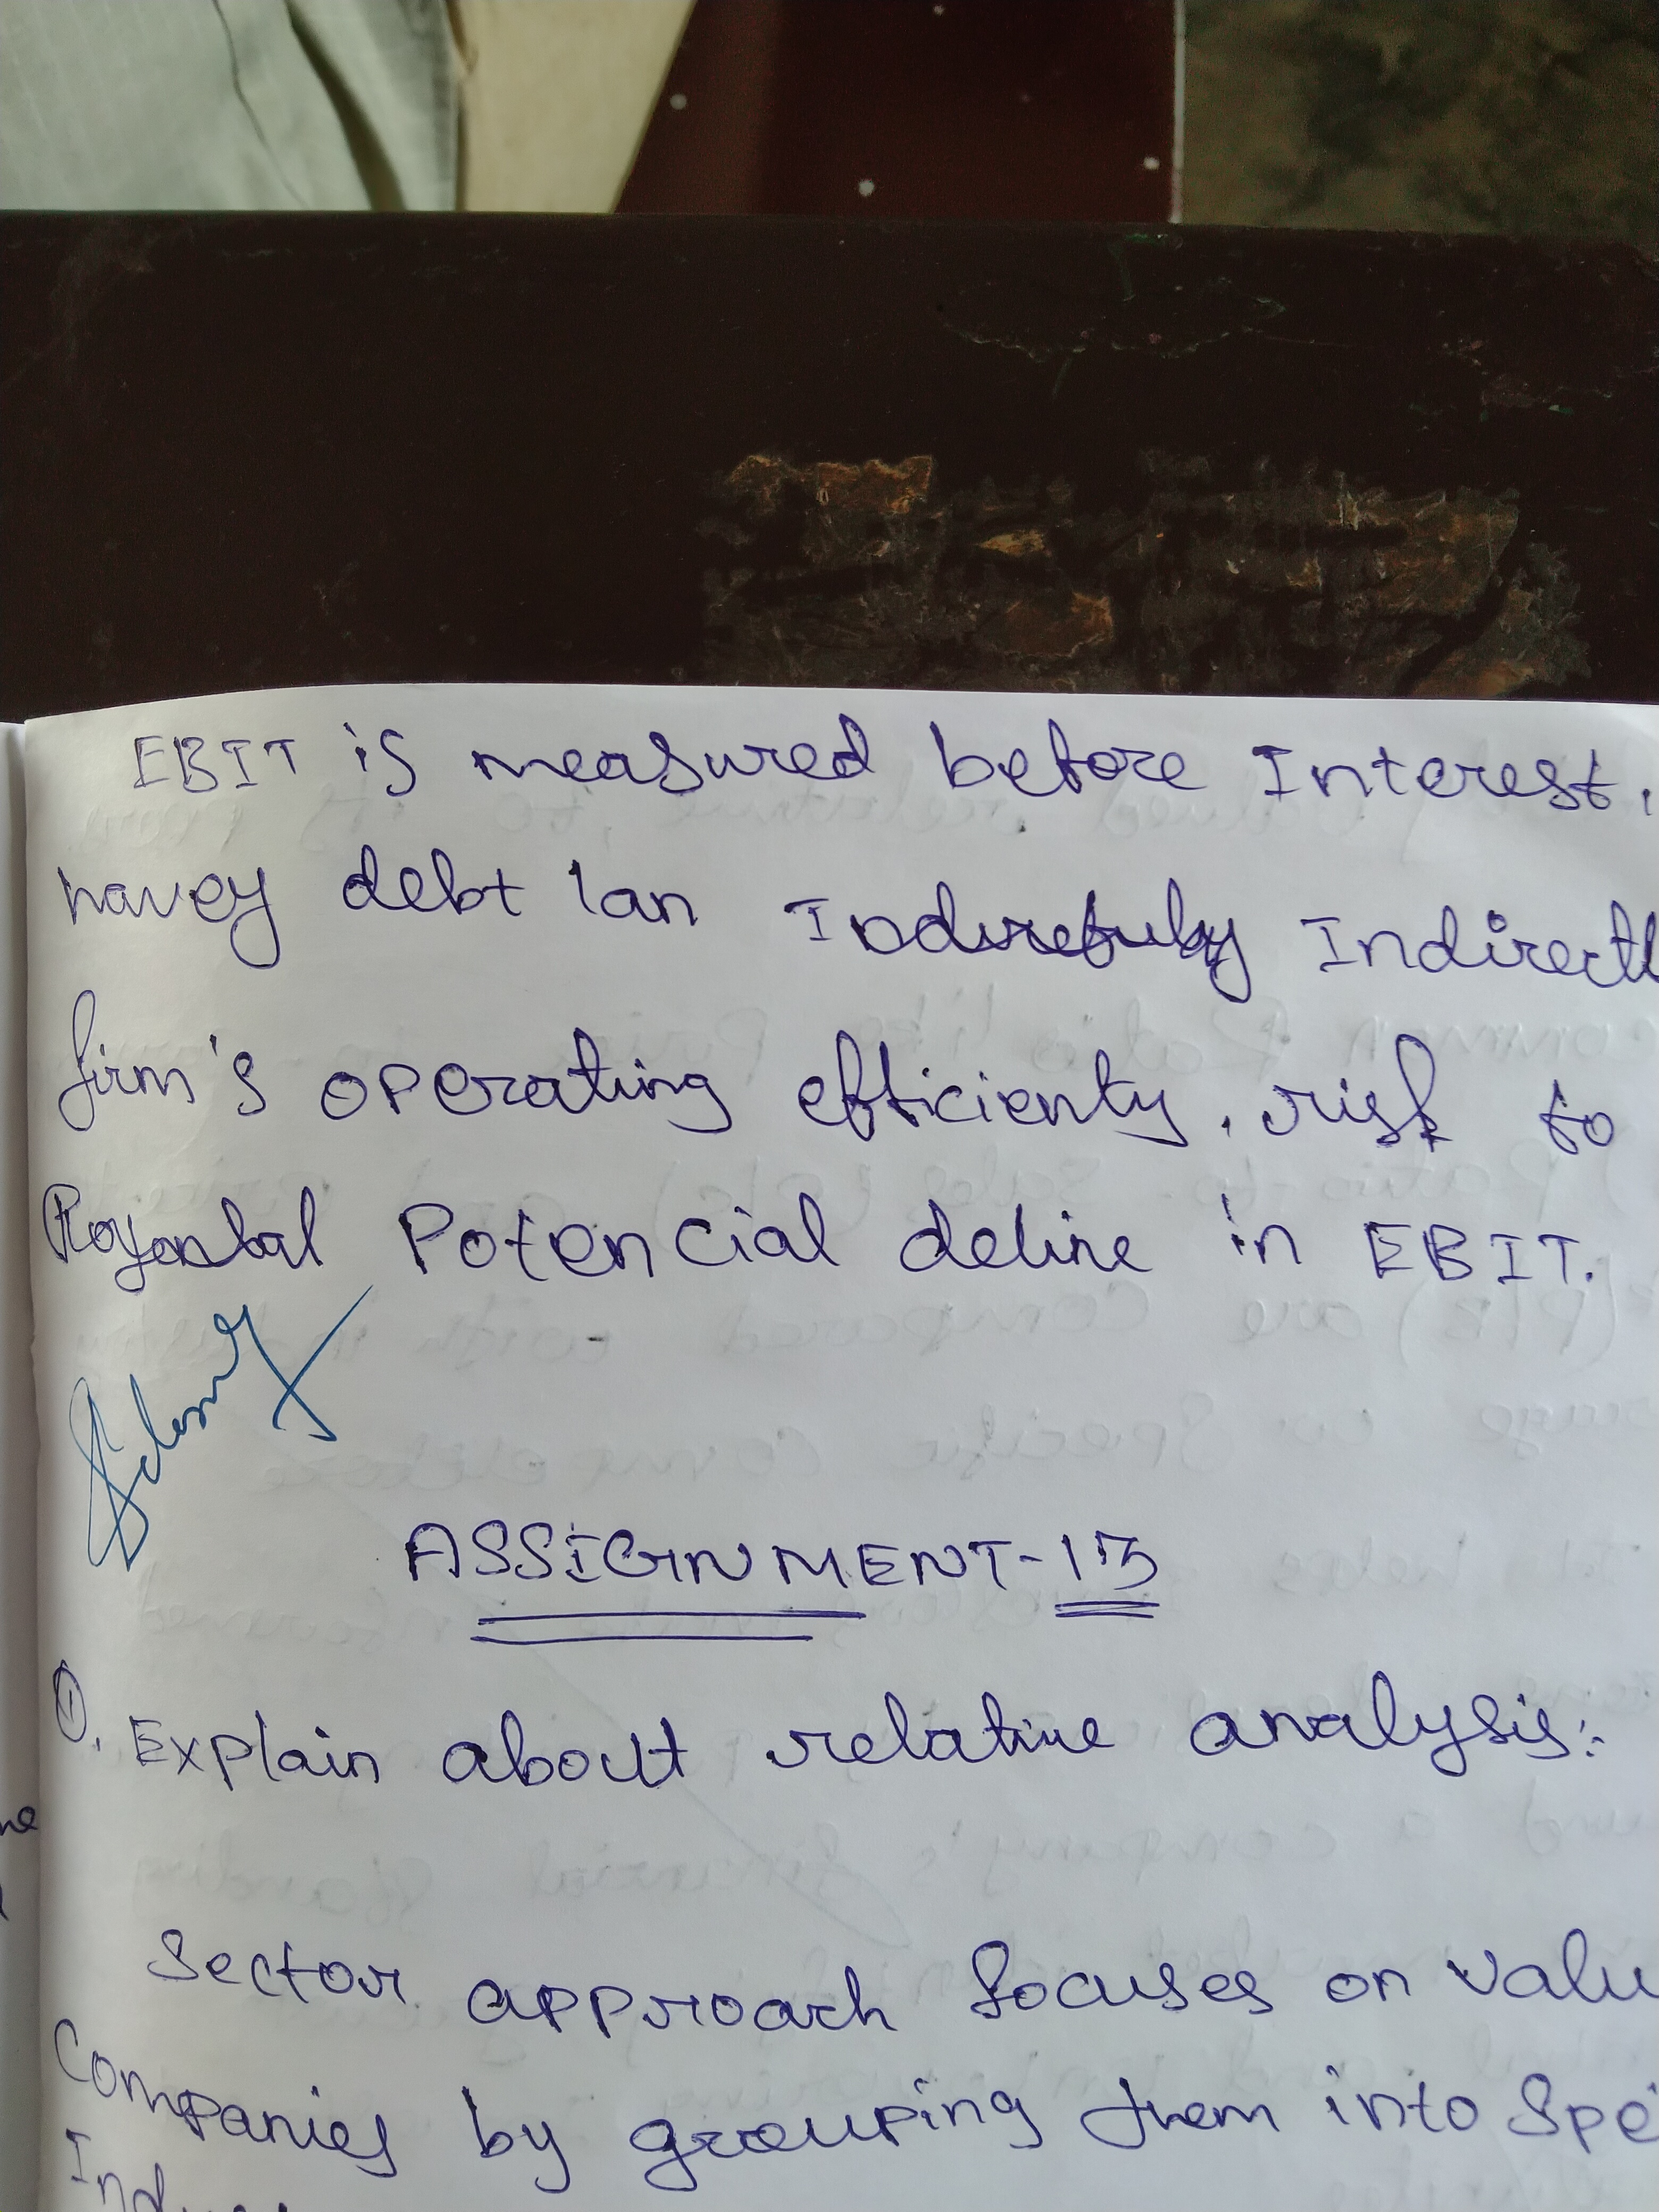 EBIT is measured before Interest.
havey debt lan Indirectl
firm's operating efficienty. risk to
Potencial deline in EBIT.
ASSIGNMENT-13
①. Explain about relative analysis:
Sector approach focuses on valu
Companies by grouping them into Spe